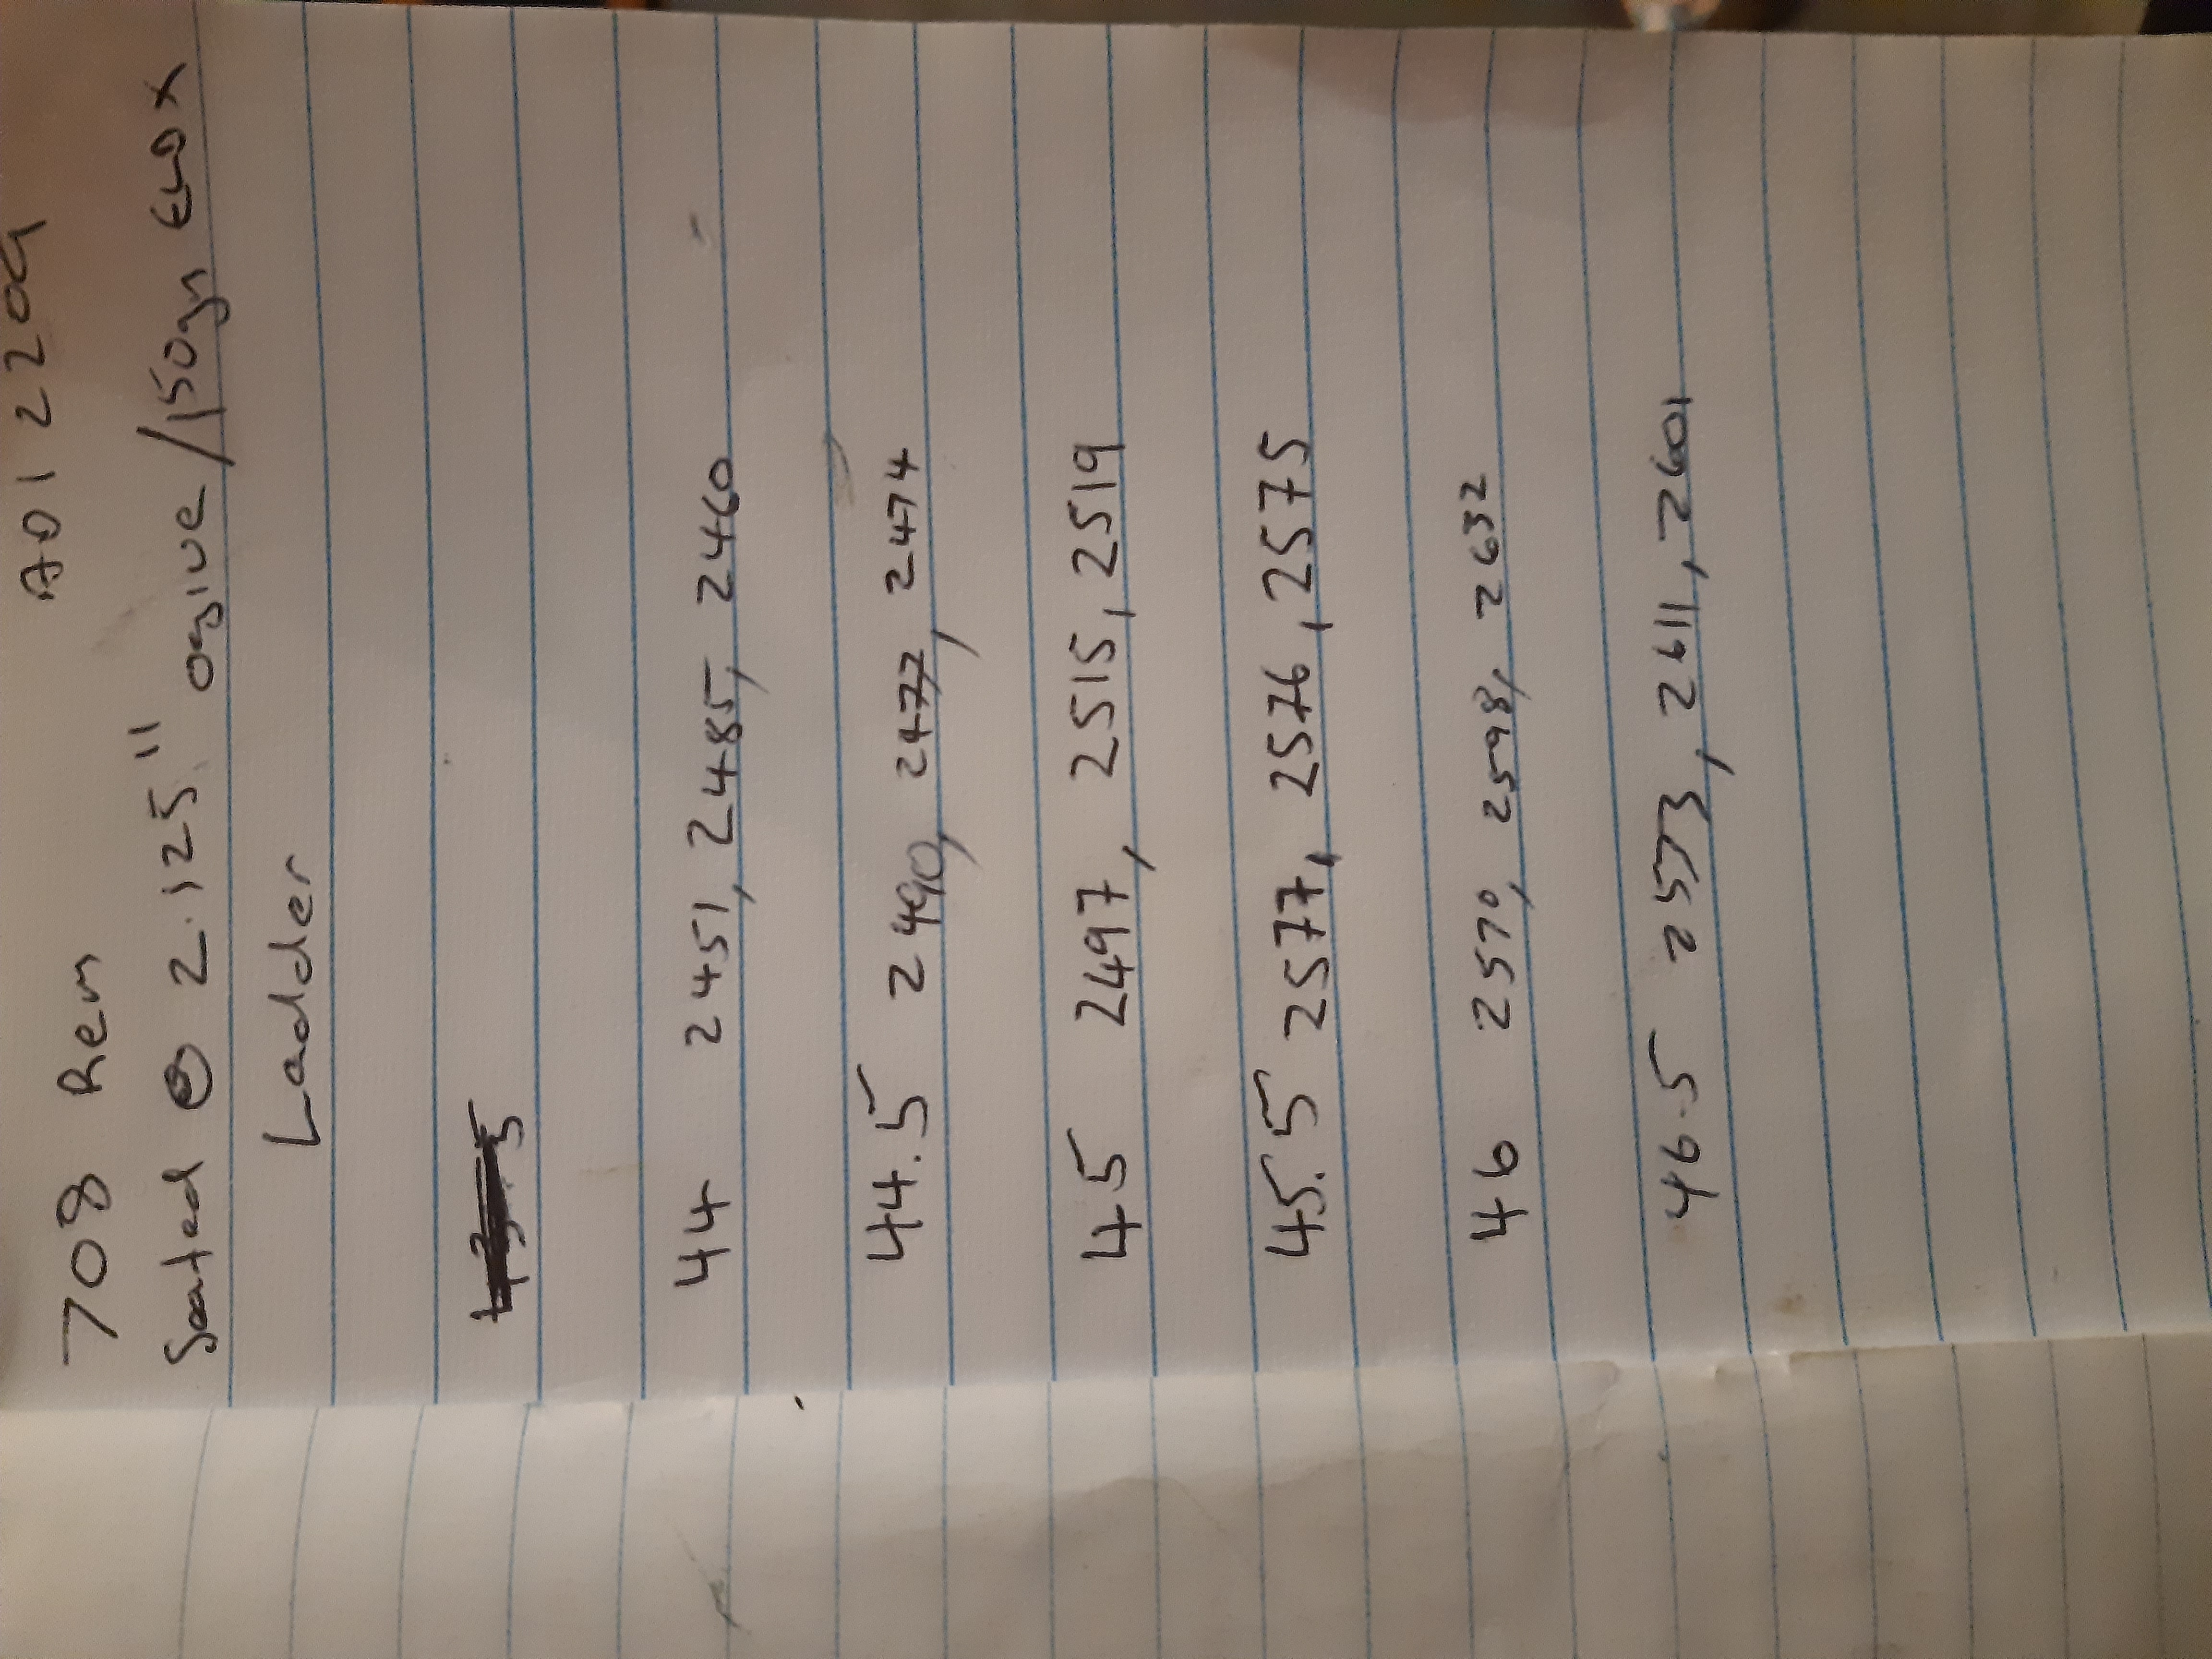 708 Rem ADI 2209
Seated @ 2.125" ogive/150gn ELDX
Ladder
44 2451, 2485, 2460
44.5 2490, 2477, 2474
45 2497, 2515, 2519
45.5 2577, 2576, 2575
46 2570, 2598, 2632
46.5 2553, 2611, 2601